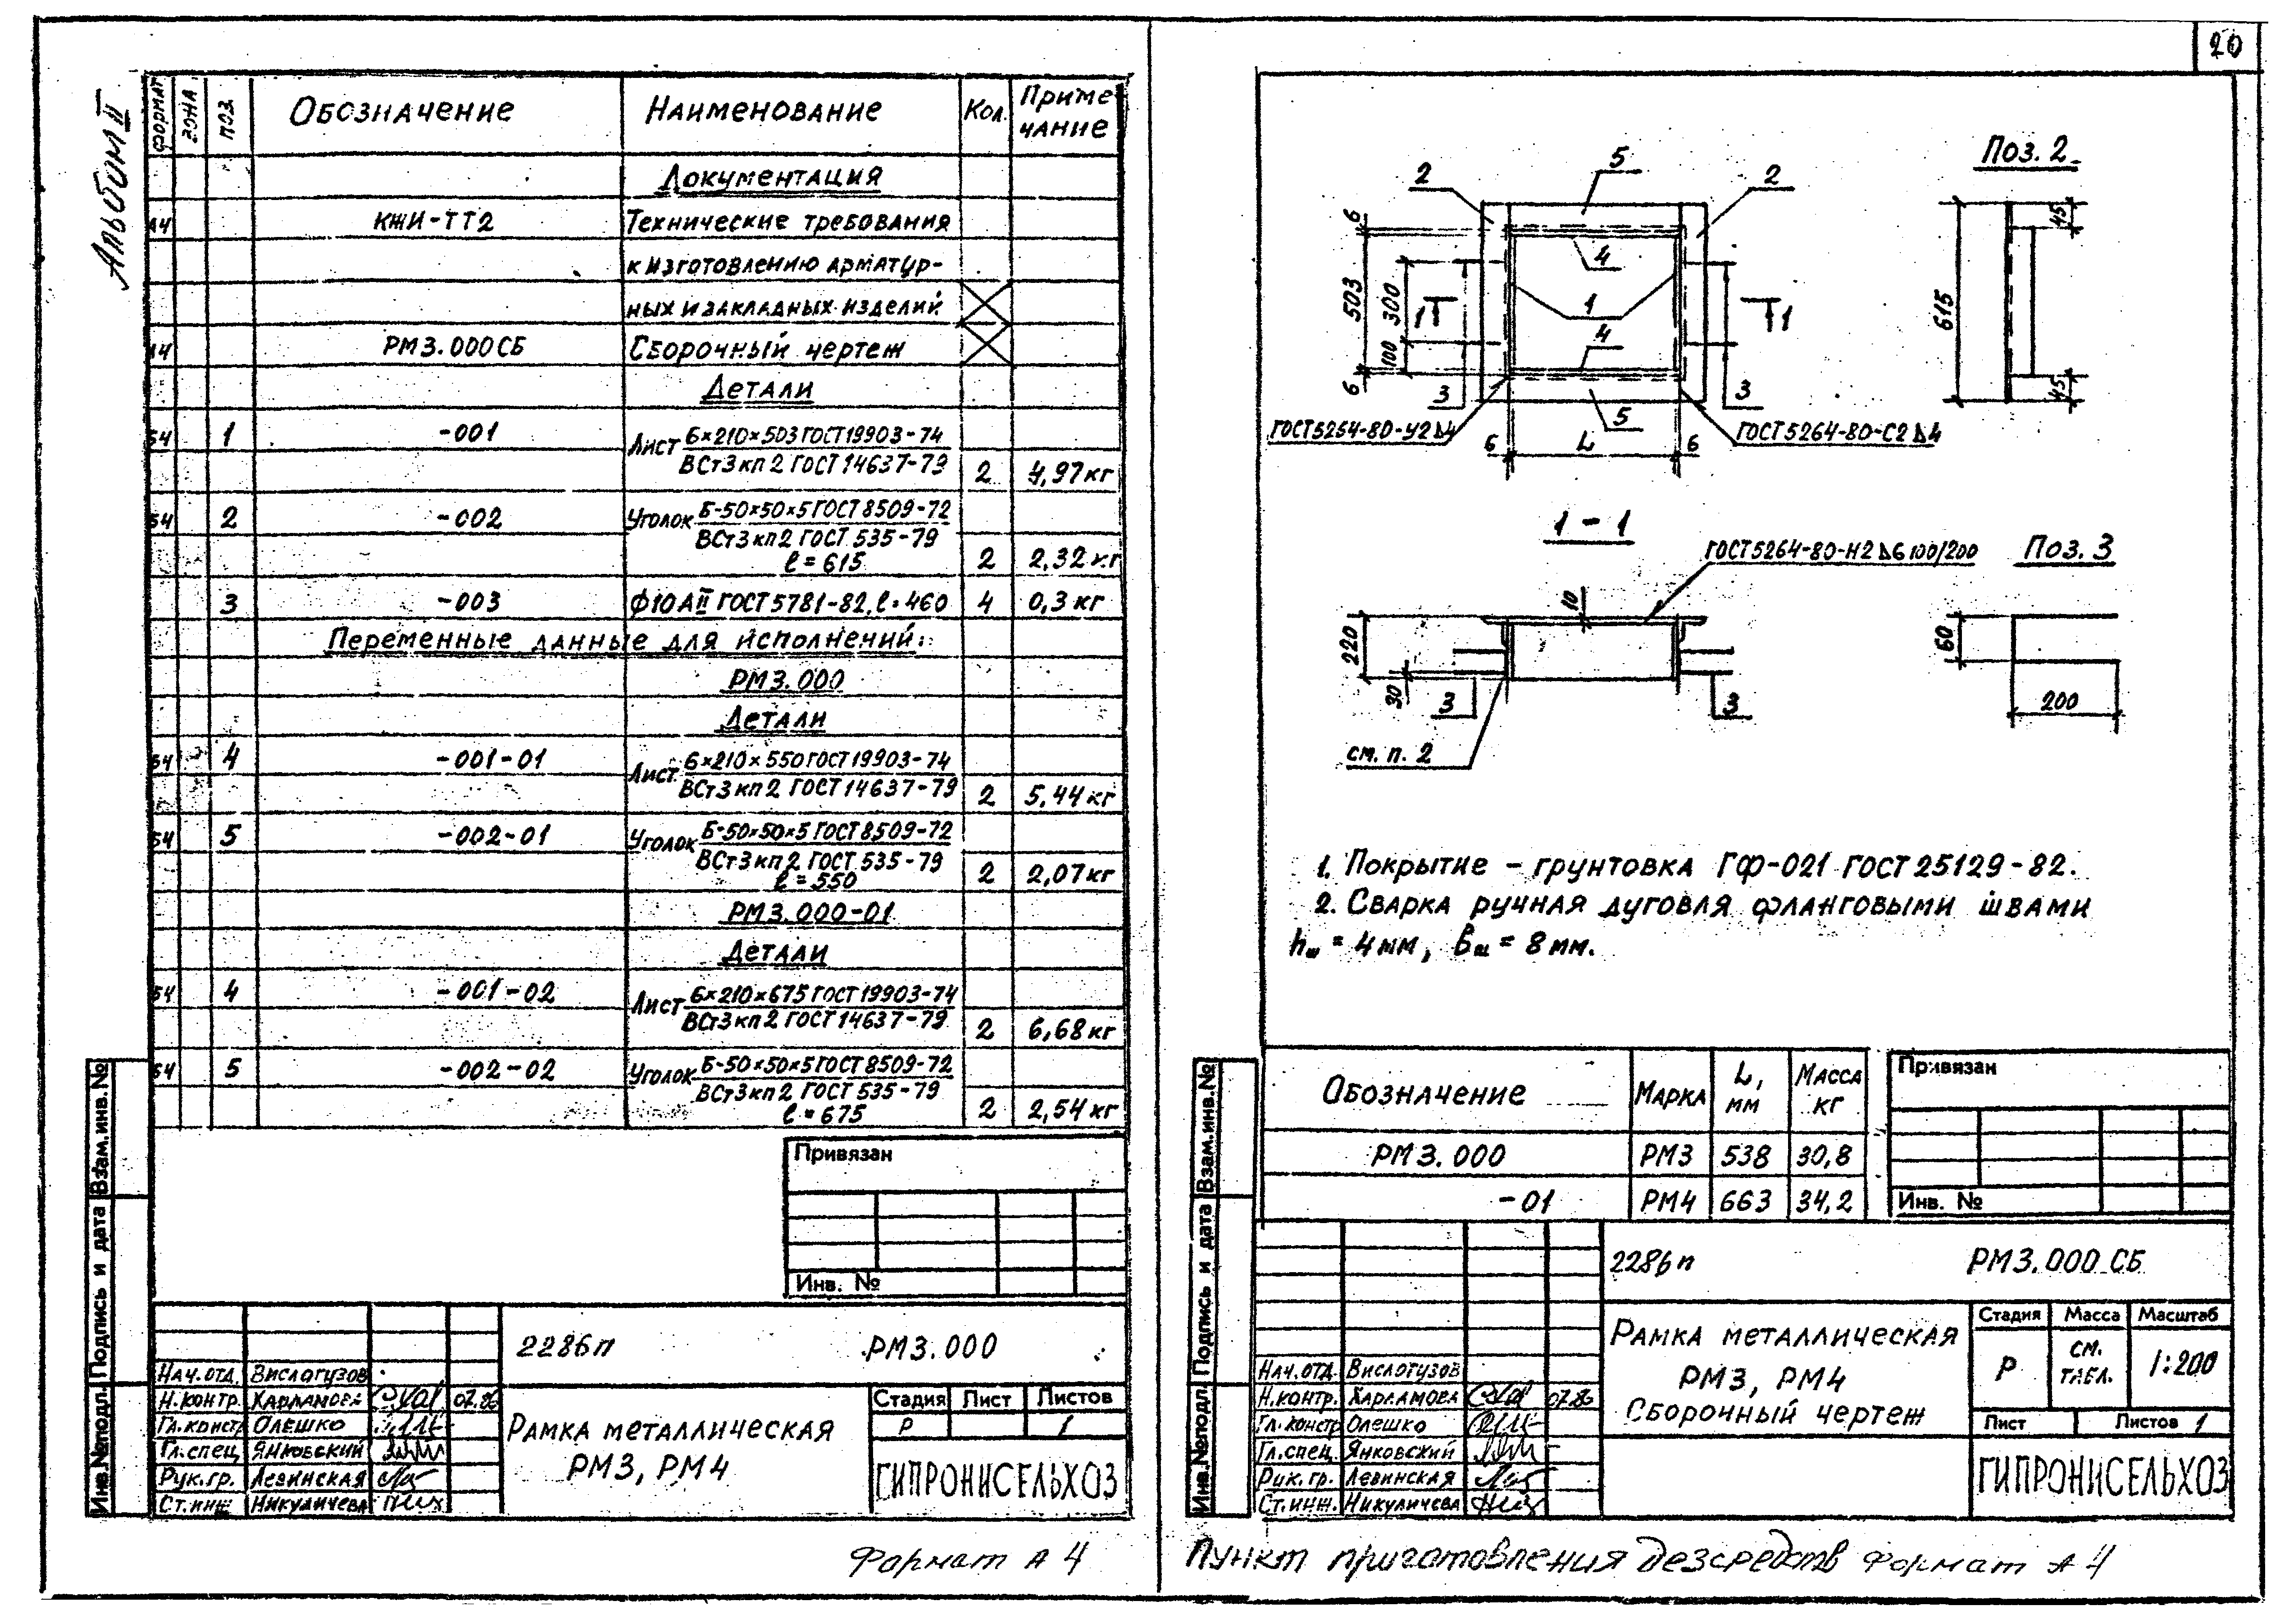 20
Альбом II
Формат
Зона
Поз.
Обозначение
Наименование
Кол.
Приме-
чание
Документация
А4 КЖИ-ТТ2 Технические требования
к изготовлению арматур-
ных и закладных изделий
А4 РМ3.000СБ Сборочный чертеж
Детали
Б4 1 -001 Лист 6×210×503 ГОСТ 19903-74
ВСт3кп2 ГОСТ 14637-79 2 4,97кг
Б4 2 -002 Уголок Б-50×50×5 ГОСТ 8509-72
ВСт3кп2 ГОСТ 535-79
ℓ=615 2 2,32кг
3 -003 Ф10АII ГОСТ 5781-82, ℓ=460 4 0,3кг
Переменные данные для исполнений:
РМ3.000
Детали
Б4 4 -001-01 Лист 6×210×550 ГОСТ 19903-74
ВСт3кп2 ГОСТ 14637-79 2 5,44кг
Б4 5 -002-01 Уголок Б-50×50×5 ГОСТ 8509-72
ВСт3кп2 ГОСТ 535-79
ℓ=550 2 2,07кг
РМ3.000-01
Детали
Б4 4 -001-02 Лист 6×210×675 ГОСТ 19903-74
ВСт3кп2 ГОСТ 14637-79 2 6,68кг
Б4 5 -002-02 Уголок Б-50×50×5 ГОСТ 8509-72
ВСт3кп2 ГОСТ 535-79
ℓ=675 2 2,54кг
Привязан
Инв. №
Взам.инв.№
Подпись и дата
Инв.№подл.
2286п РМ3.000
Нач.отд. Вислогузов
Н.контр. Харламова 07.86
Гл.констр Олешко
Гл.спец Янковский
Рук.гр. Левинская
Ст.инж Никуличева
Рамка металлическая
РМ3, РМ4
Стадия Лист Листов
Р 1
ГИПРОНИСЕЛЬХОЗ
Формат А4
2 5 2
6
503
300
100
6
4
1
4
1 1
3 3
5
ГОСТ 5264-80-У2⊿4
ГОСТ 5264-80-С2⊿4
6 L 6
Поз. 2
45
615
45
1-1
ГОСТ 5264-80-Н2⊿6 100/200
10
220
30
3 3
см. п. 2
Поз. 3
60
200
1. Покрытие - грунтовка ГФ-021 ГОСТ 25129-82.
2. Сварка ручная дуговая фланговыми швами
hш = 4мм, bш = 8мм.
Обозначение Марка L, мм Масса кг
РМ3.000 РМ3 538 30,8
-01 РМ4 663 34,2
Привязан
Инв. №
Взам.инв.№
Подпись и дата
Инв.№подл.
2286п РМ3.000 СБ
Нач.отд. Вислогузов
Н.контр. Харламова 07.86
Гл.констр Олешко
Гл.спец. Янковский
Рук.гр. Левинская
Ст.инж. Никуличева
Рамка металлическая
РМ3, РМ4
Сборочный чертеж
Стадия Масса Масштаб
Р см. табл. 1:200
Лист Листов 1
ГИПРОНИСЕЛЬХОЗ
Пункт приготовления дезсредств Формат А4